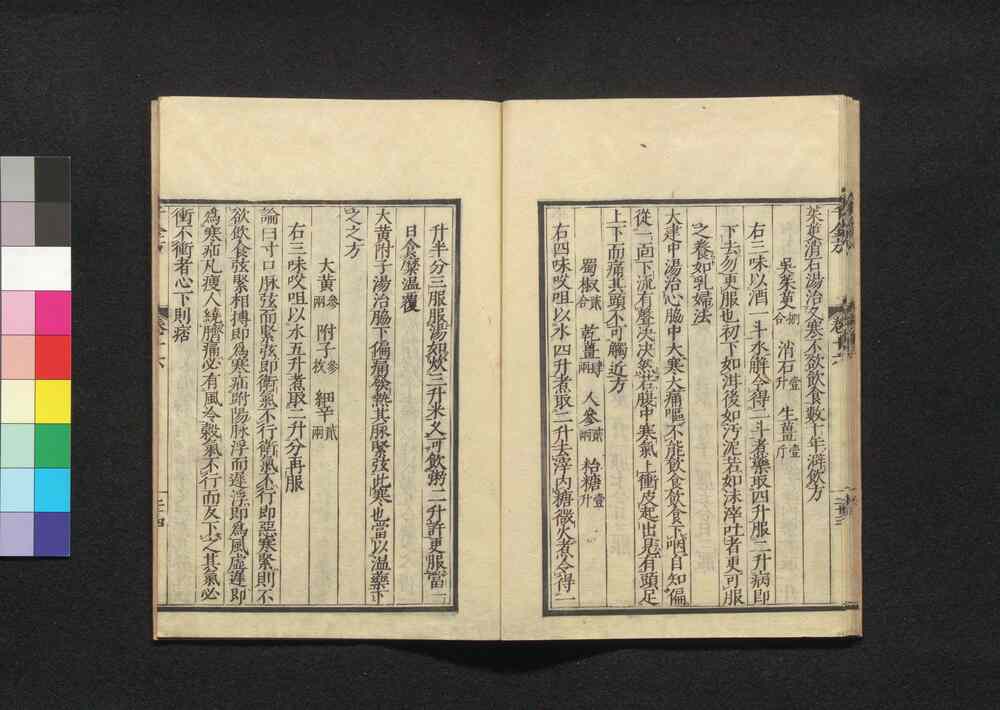 茱萸消石湯治久寒不欲飲食數十年澼飲方
吳茱萸捌合 消石壹升 生薑壹斤
右三味以酒一斗水解令得二斗煮藥取四升服二升病即
下去勿更服也初下如泔後如汚泥若如沫滓吐者更可服
之養如乳婦法
大建中湯治心脇中大寒大痛嘔不能飲食飲食下咽自知偏
從一面下流有聲決決然若腹中寒氣上衝皮起出見有頭足
上下而痛其頭不可觸近方
蜀椒貳合 乾薑肆兩 人參貳兩 粭糖壹升
右四味㕮咀以水四升煮取二升去滓內糖微火煮令得一
升半分三服服湯如炊三升米久可飲粥二升許更服當一
日食糜温覆
大黄附子湯治脇下偏痛發熱其脉緊弦此寒也當以温藥下
之之方
大黄參兩 附子參枚 細辛貳兩
右三味㕮咀以水五升煮取二升分再服
論曰寸口脉弦而緊弦即衛氣不行衛氣不行即惡寒緊則不
欲飲食弦緊相搏即爲寒疝趺陽脉浮而遲浮即爲風虚遲即
爲寒疝凡瘦人繞臍痛必有風冷穀氣不行而反下之其氣必
衝不衝者心下則痞
卷十六